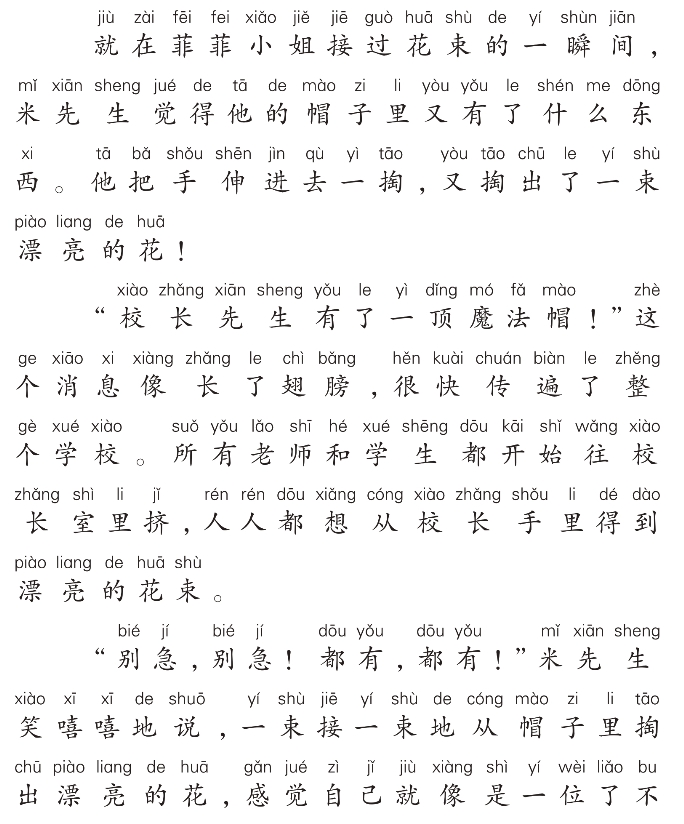 jiù zài fēi fei xiǎo jiě jiē guò huā shù de yí shùn jiān
就在菲菲小姐接过花束的一瞬间，
mǐ xiān sheng jué de tā de mào zi li yòu yǒu le shén me dōng
米先生觉得他的帽子里又有了什么东
xi tā bǎ shǒu shēn jìn qù yì tāo yòu tāo chū le yí shù
西。他把手伸进去一掏，又掏出了一束
piào liang de huā
漂亮的花！
xiào zhǎng xiān sheng yǒu le yì dǐng mó fǎ mào zhè
“校长先生有了一顶魔法帽！”这
ge xiāo xi xiàng zhǎng le chì bǎng hěn kuài chuán biàn le zhěng
个消息像长了翅膀，很快传遍了整
gè xué xiào suǒ yǒu lǎo shī hé xué shēng dōu kāi shǐ wǎng xiào
个学校。所有老师和学生都开始往校
zhǎng shì li jǐ rén rén dōu xiǎng cóng xiào zhǎng shǒu li dé dào
长室里挤，人人都想从校长手里得到
piào liang de huā shù
漂亮的花束。
bié jí bié jí dōu yǒu dōu yǒu mǐ xiān sheng
“别急，别急！都有，都有！”米先生
xiào xī xī de shuō yí shù jiē yí shù de cóng mào zi li tāo
笑嘻嘻地说，一束接一束地从帽子里掏
chū piào liang de huā gǎn jué zì jǐ jiù xiàng shì yí wèi liǎo bu
出漂亮的花，感觉自己就像是一位了不